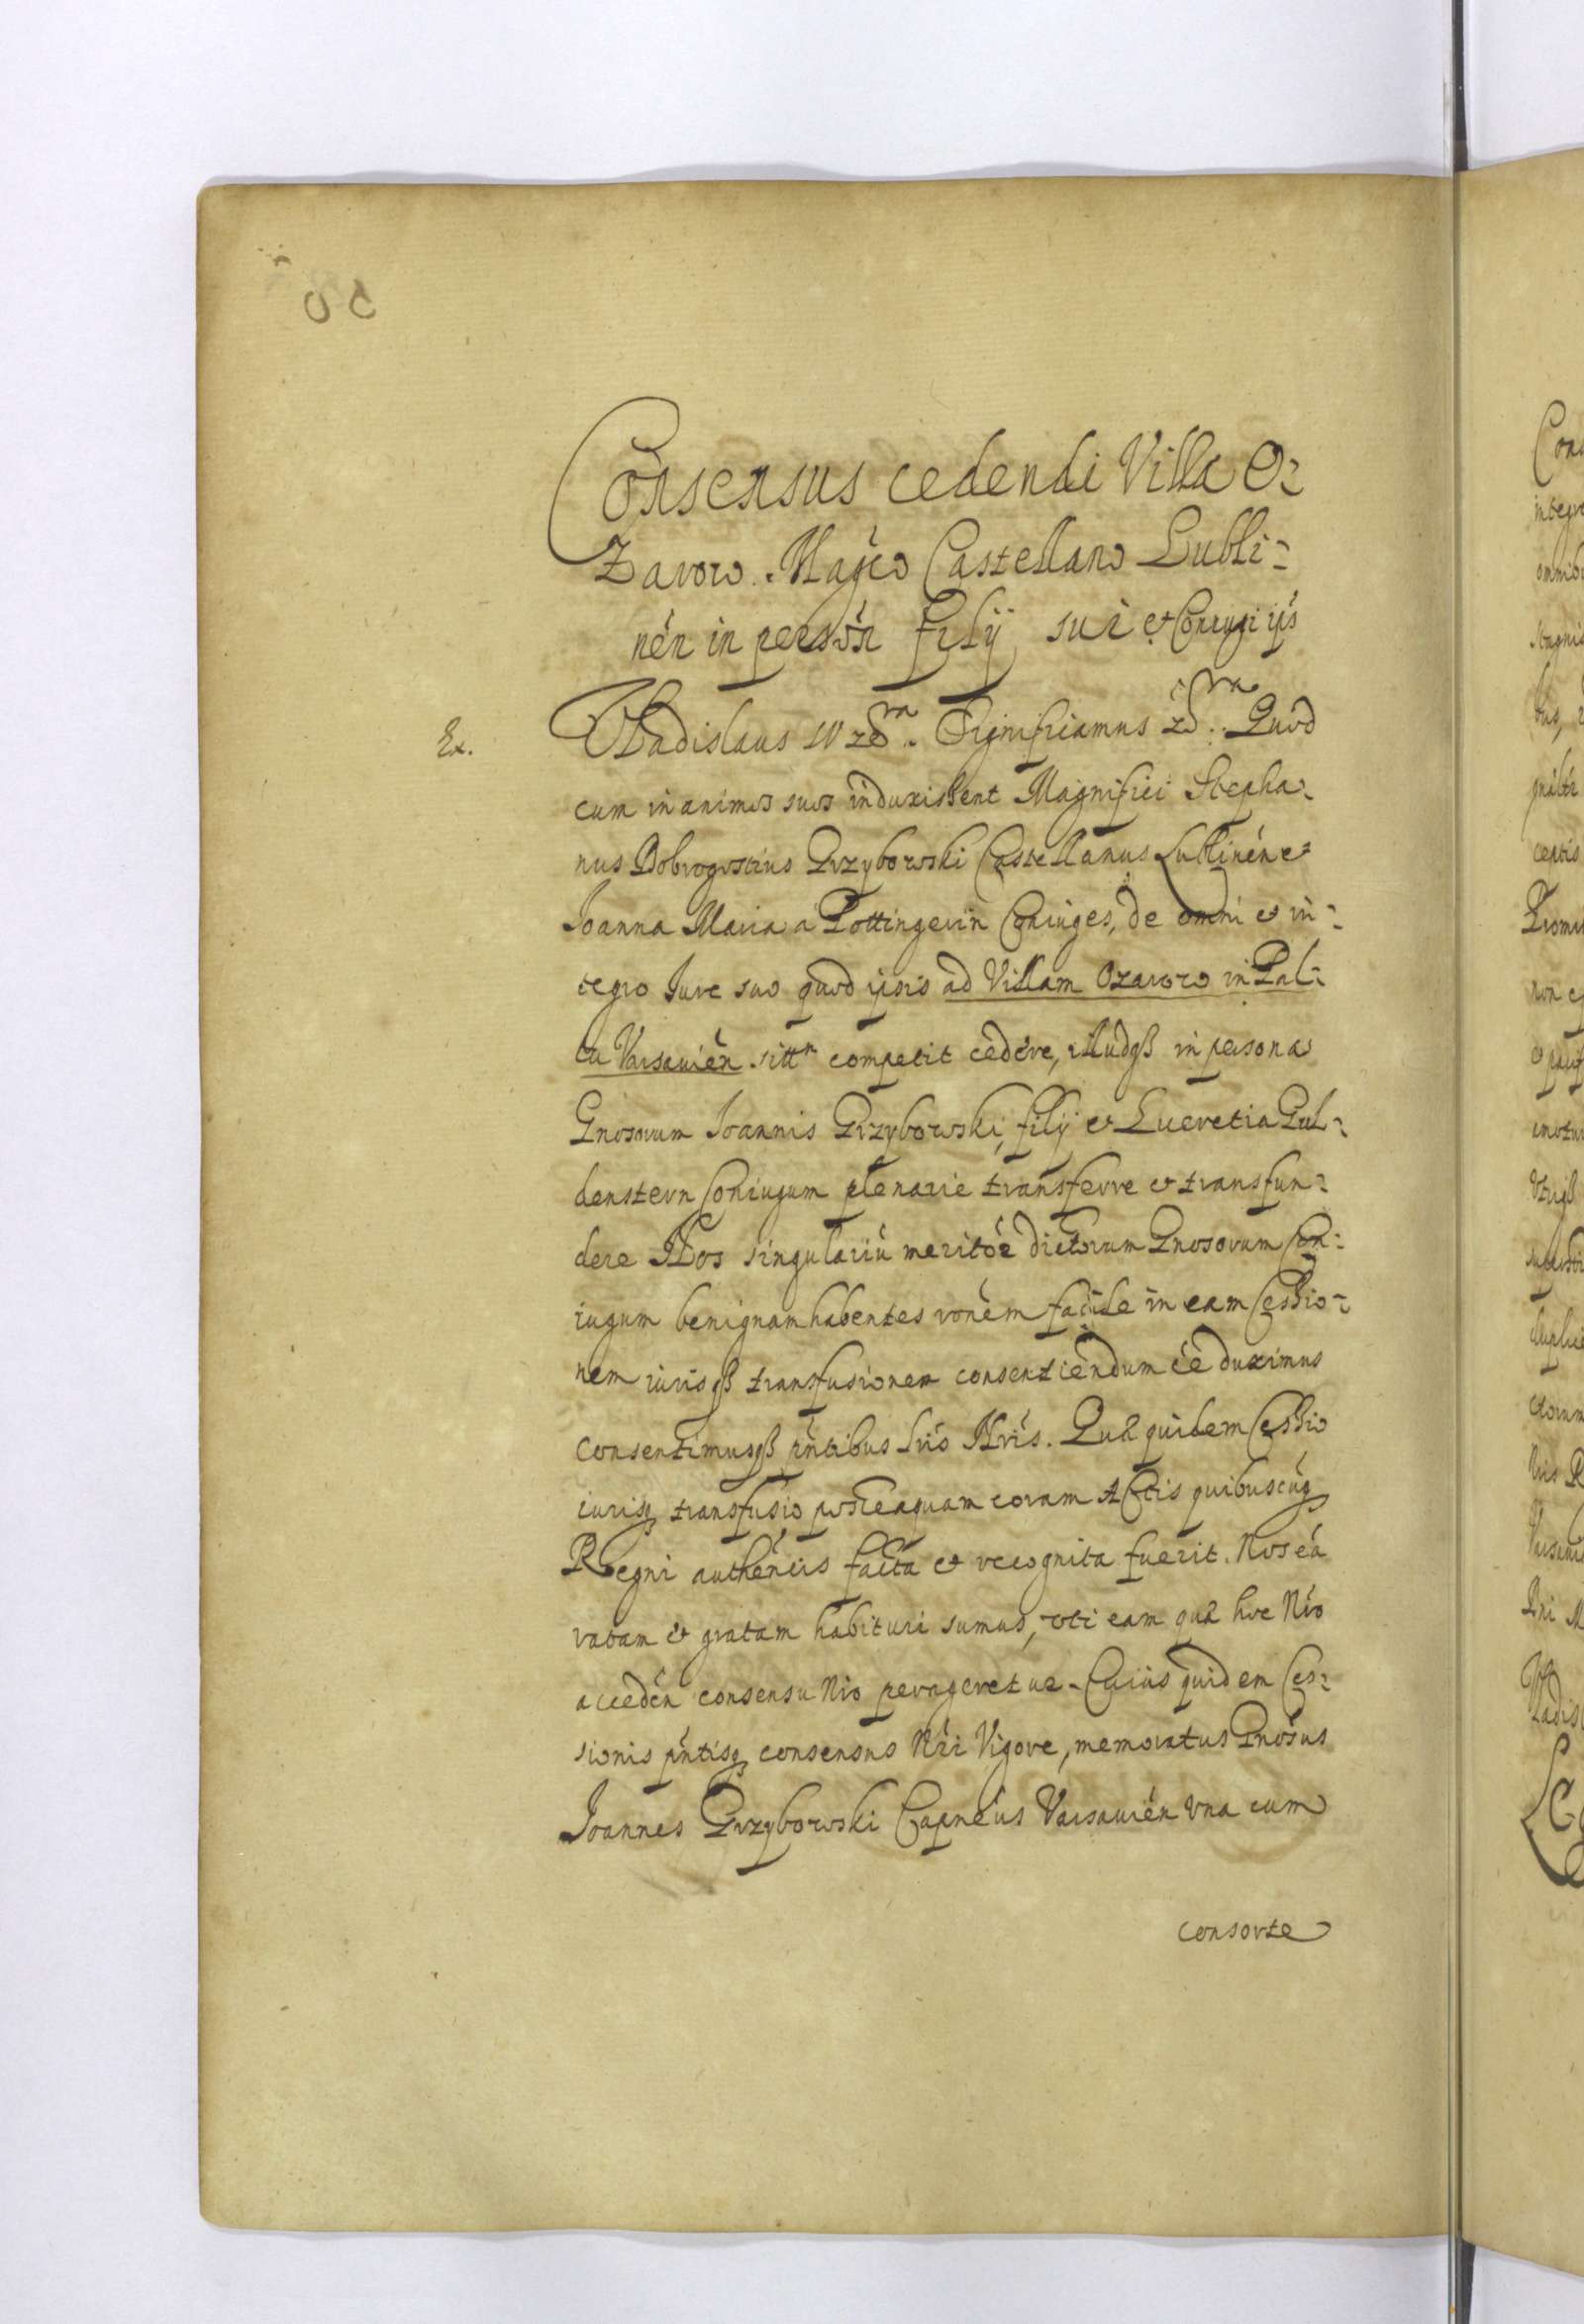 Consensus cedendi Villa O-
Zarow. Magco Castellano Lubli-
nen in person filij sui et Coniugi ijs
Ex.
Vladislaus IV Significamus Quod
cum in animos suos induxissent Magnifici Stepha-
nus Dobrogostius Grzybowski Castellanus Lublinen et
Joanna Maria a Pottingerin Coniuges, de omni et in-
tegro Jure suo quod ipsis ad Villam Ozarow in Pal-
tu Varsavien sittm competit cedere, illudqß in personas
Gnosorum Joannis Grzybowski, filij et Lucretia Gul-
denstern Coniugum plenarie transferre et transfun-
dere Nos singulariu meritor dictorum Gnosorum Con-
iugum benignam habentes ronem facile in eam Cessio-
nem iurisqß transfusionem consentiendum ee duximus
consentimusqß pntibus Lris Nris. Quæ quidem Cessio
iurisq transfusio posteaquam coram Actis quibuscuq
Regni authencis facta et recognita fuerit. Nos ea
ratam et gratam habituri sumus, uti eam quæ hoc Nro
acceden consensu Nro perageretur. Cuius quidem Ces-
sionis pntisq consensus Nri Vigore, memoratus Gnosus
Joannes Grzybowski Capneus Varsavien una cum
consorte